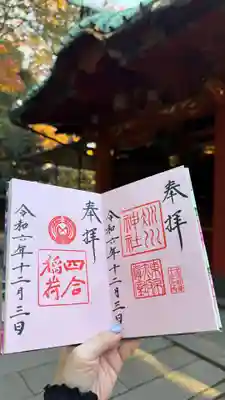 奉拝
氷川
神社
令和六年十二月三日
奉拝
四合
稲荷
令和六年十二月三日